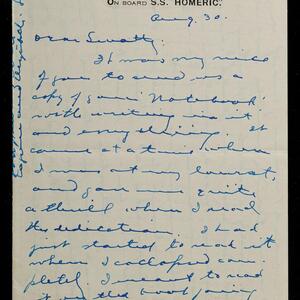 ON BOARD S.S. HOMERIC.
Aug. 30.
Dear Swatty:
It was very nice
of you to send us a
copy of your Notebook
with writing in it
and everything. It
came at a time when
I was at my lowest,
and gave me quite
a thrill when I read
the dedication. I had
just started to read it
when I collapsed com-
pletely. I meant to read
it on the boat going